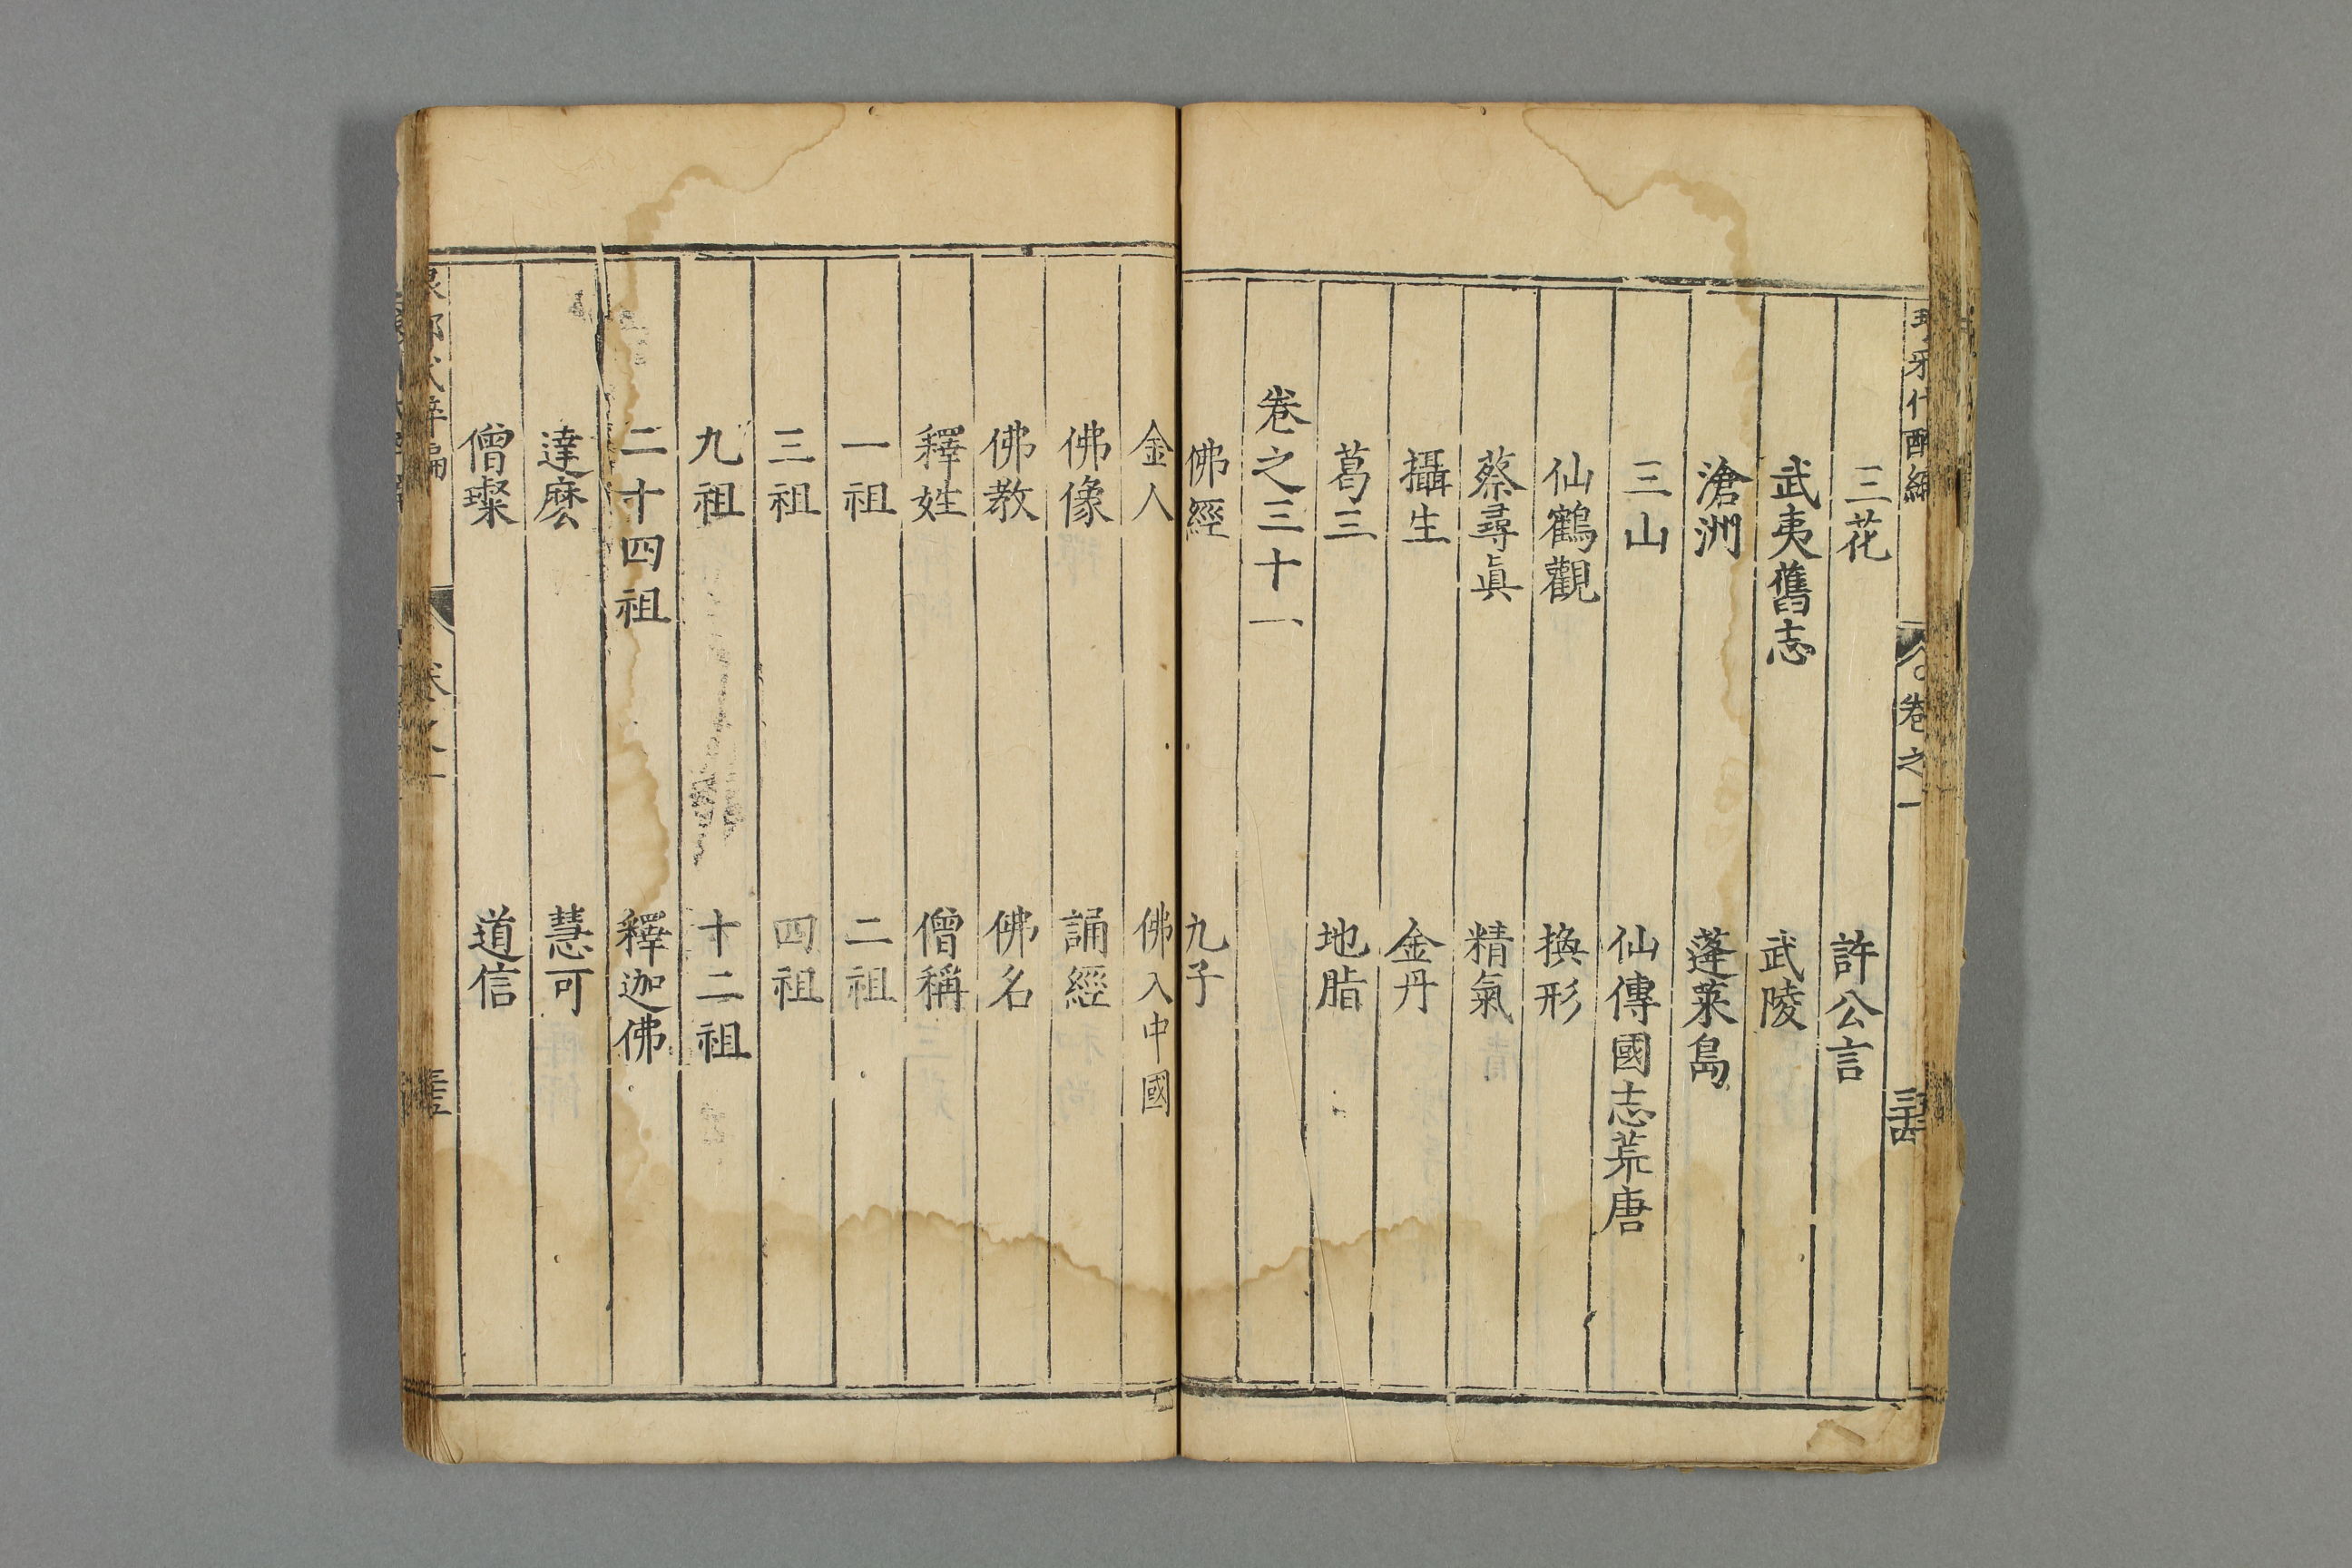 三花 許公言
武夷舊志 武陵
滄洲 蓬萊島
三山 仙傳國志荒唐
仙鶴觀 換形
蔡尋眞 精氣
攝生 金丹
葛三 地脂
卷之三十一
佛經 九子
金人 佛入中國
佛像 誦經
佛教 佛名
釋姓 僧稱
一祖 二祖
三祖 四祖
九祖 十二祖
二十四祖 釋迦佛
達麽 慧可
僧璨 道信
卷之一